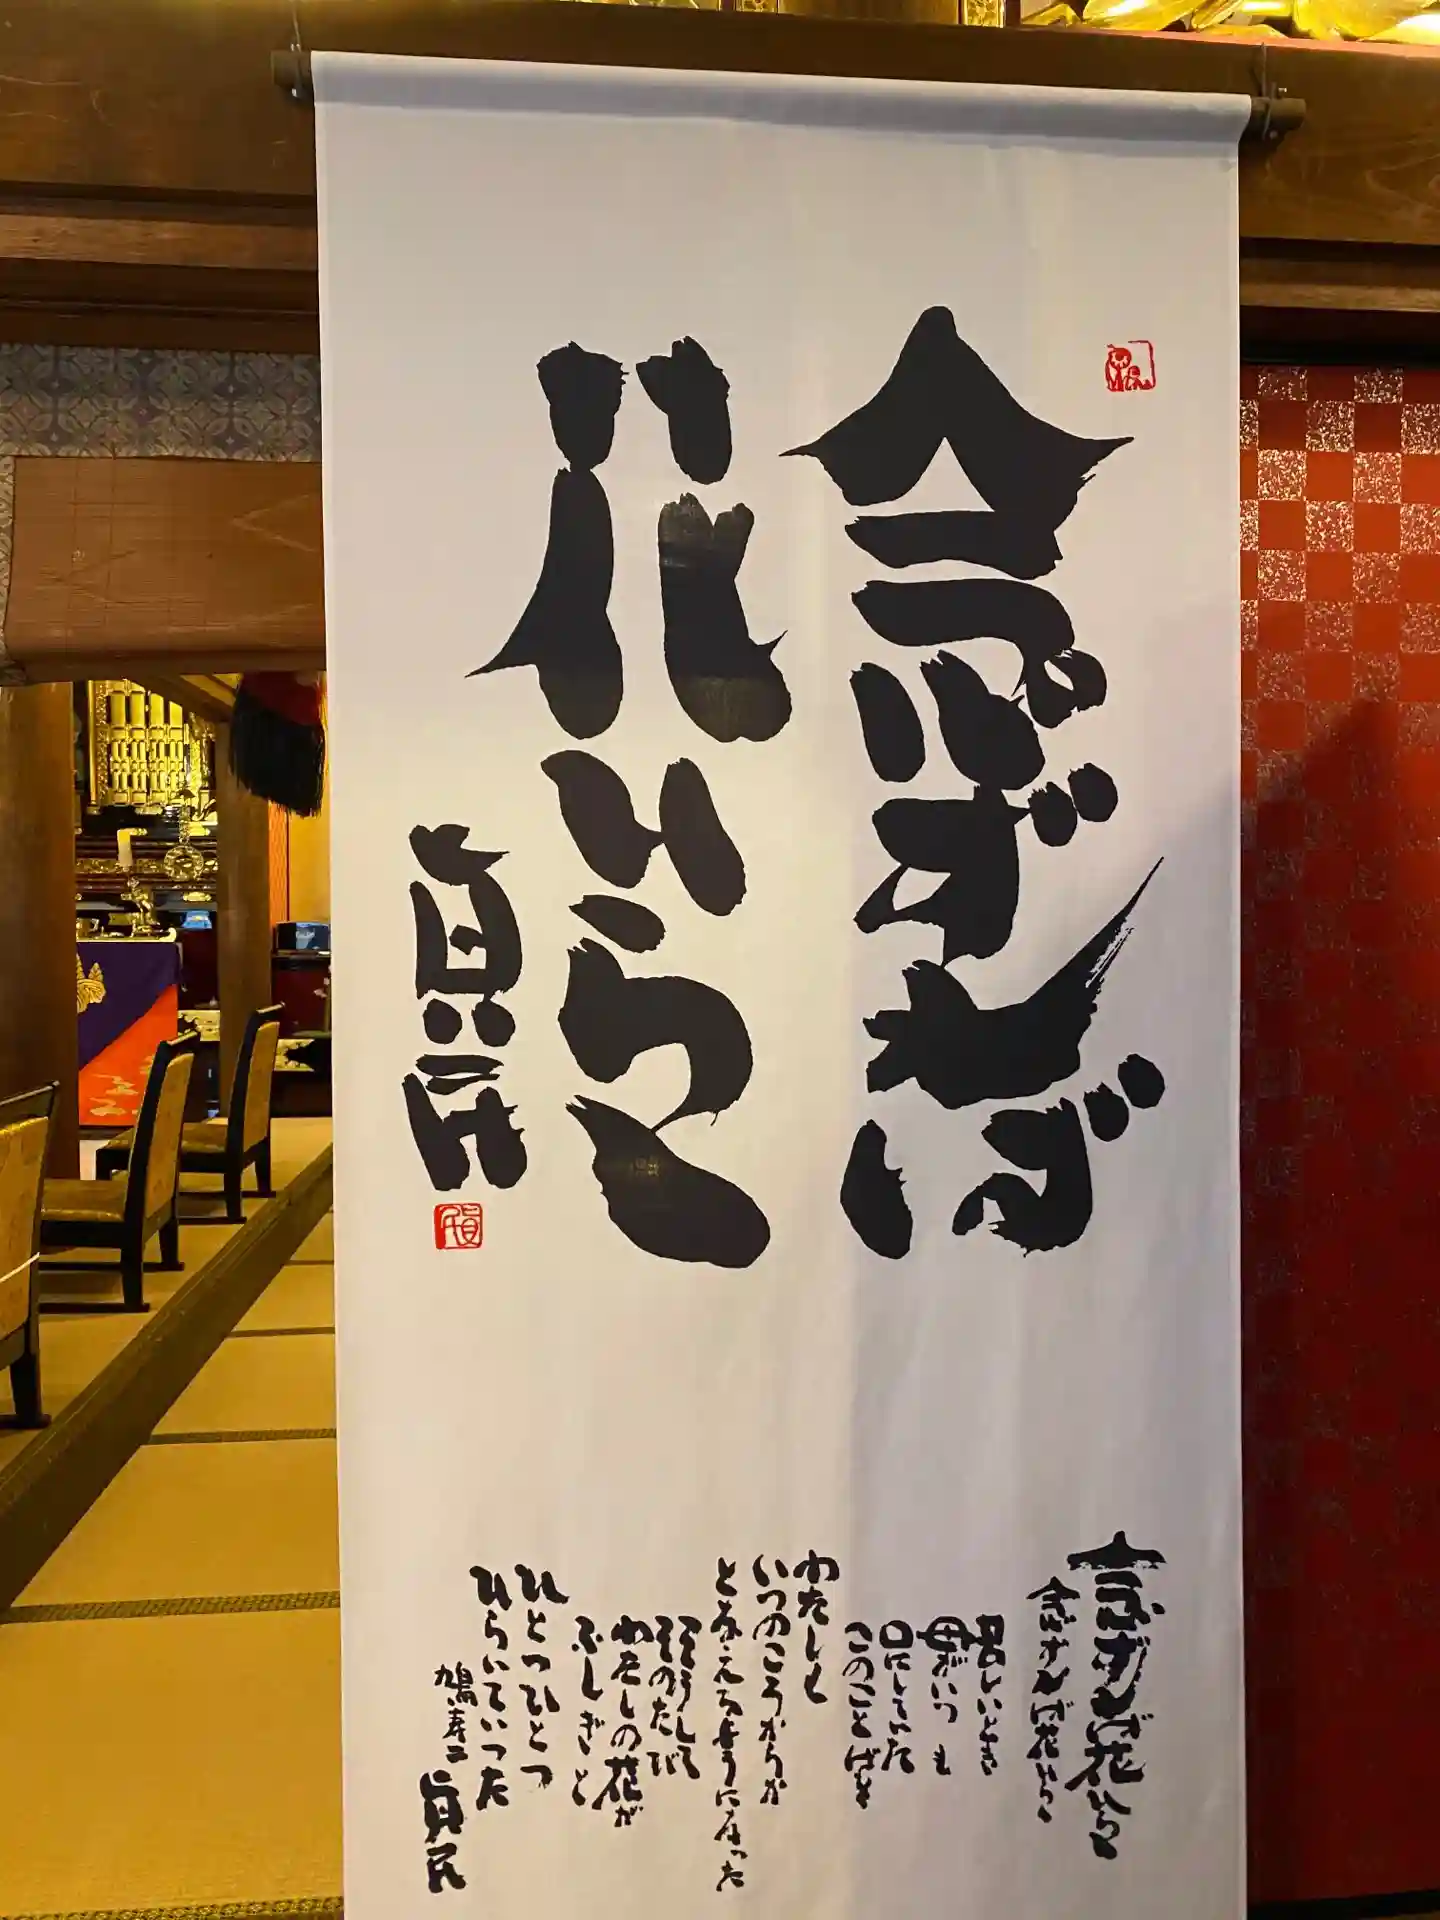 念ずれば
花ひらく
真民
念ずれば花ひらく
念ずれば花ひらく
苦しいとき
母がいつも
口にしていた
このことばを
わたしも
いつのころからか
となえるようになった
そうして
そのたび
わたしの花が
ふしぎと
ひとつひとつ
ひらいていった
真民